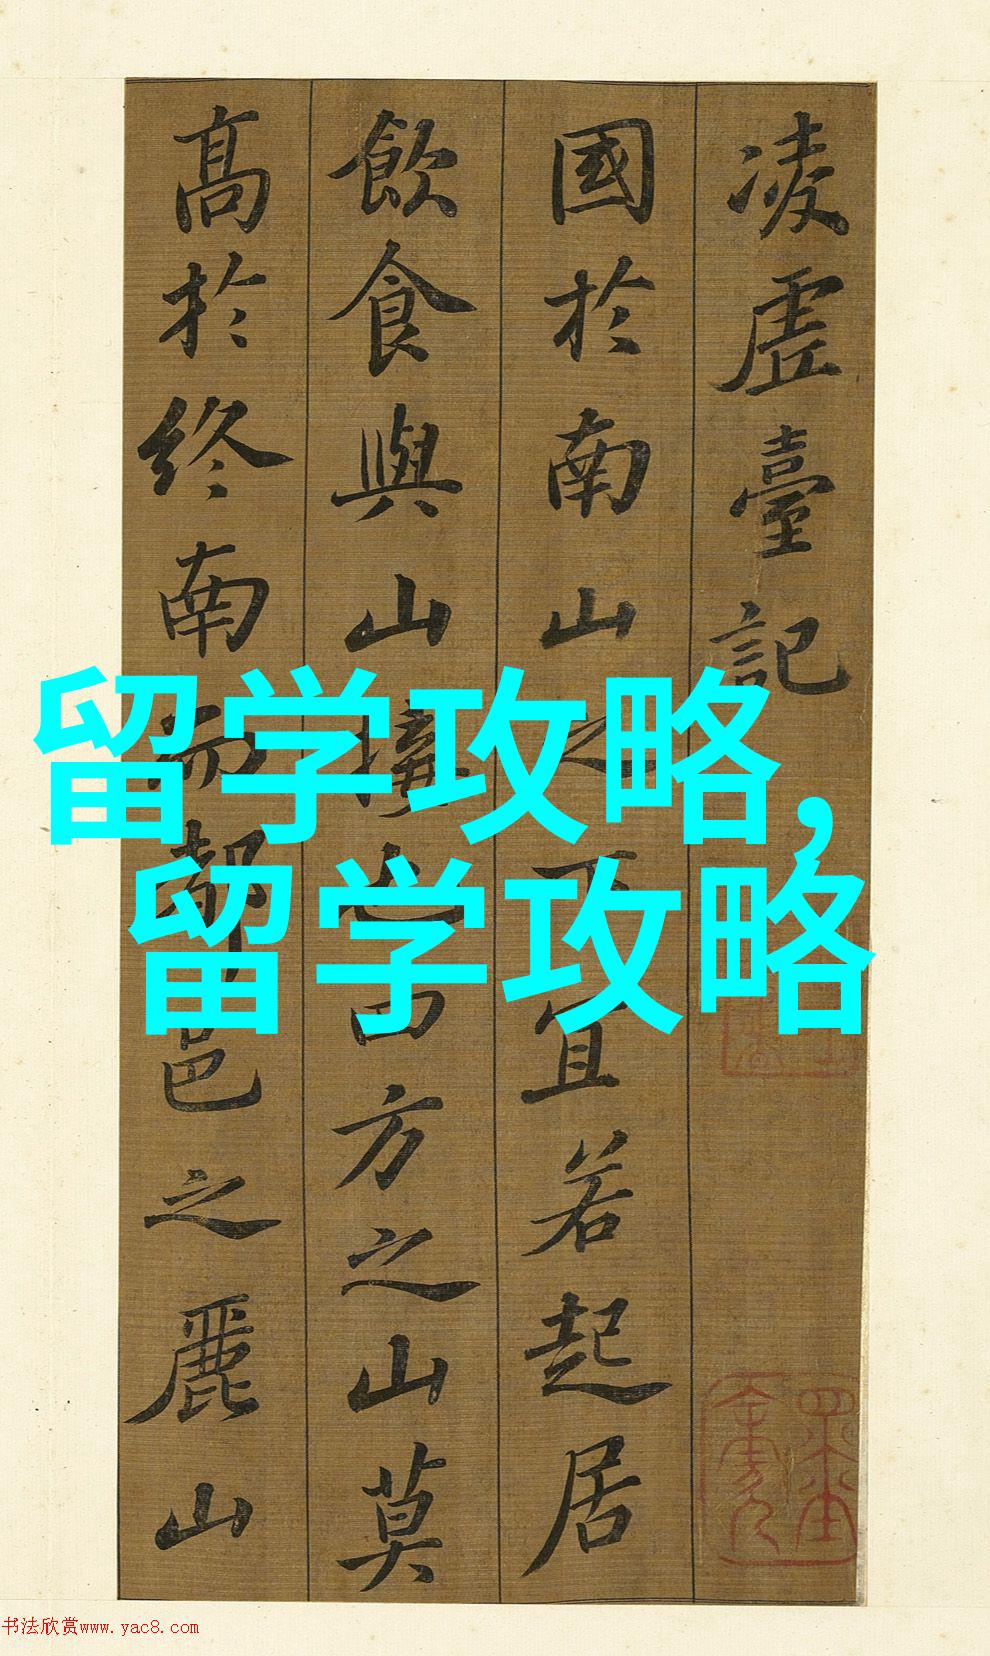 凌虛臺記
國於南山之下宜若起居
飲食與山接也四方之山莫
高於終南而都邑之麗山
留学攻略,
留学攻略
书法欣赏www.yac8.com